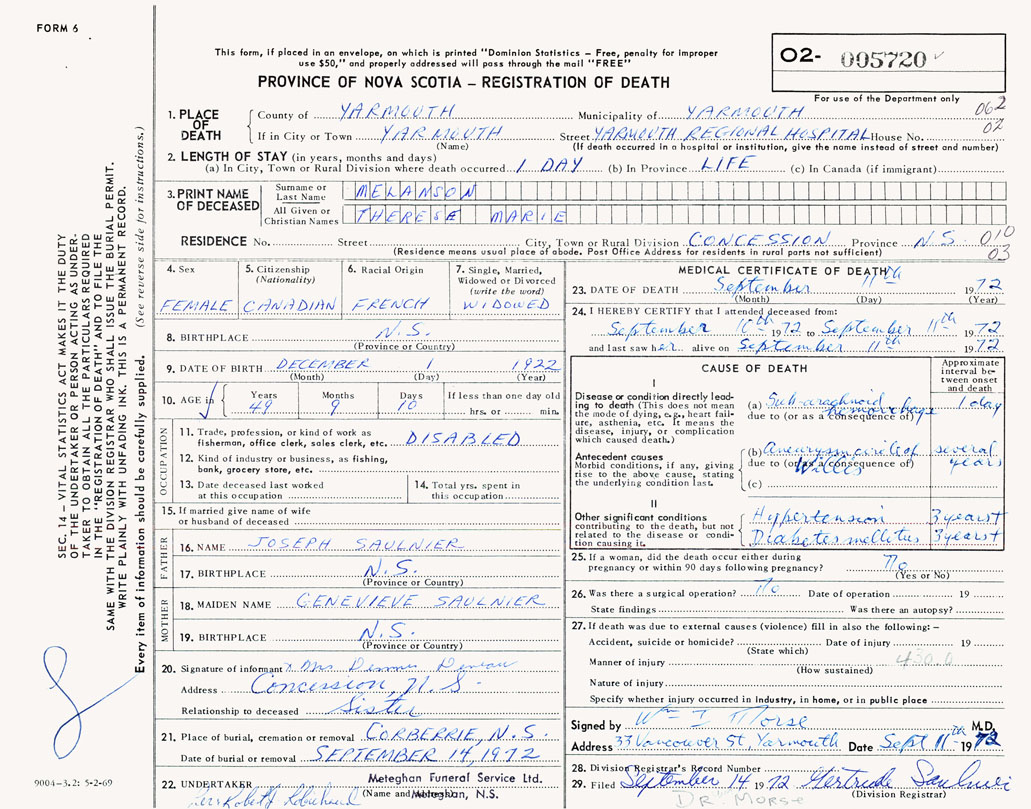 FORM 6
This form, if placed in an envelope, on which is printed "Dominion Statistics – Free, penalty for improper
use $50," and properly addressed will pass through the mail "FREE"
PROVINCE OF NOVA SCOTIA – REGISTRATION OF DEATH
02- 005720
For use of the Department only
062
02
1. PLACE OF DEATH
County of YARMOUTH Municipality of YARMOUTH
If in City or Town YARMOUTH Street YARMOUTH REGIONAL HOSPITAL House No.
(Name) (If death occurred in a hospital or institution, give the name instead of street and number)
2. LENGTH OF STAY (in years, months and days)
(a) In City, Town or Rural Division where death occurred 1 DAY (b) In Province LIFE (c) In Canada (if immigrant)
3. PRINT NAME OF DECEASED
Surname or Last Name MELANSON
All Given or Christian Names THERESE MARIE
RESIDENCE No. Street City, Town or Rural Division CONCESSION Province N.S. 010
(Residence means usual place of abode. Post Office Address for residents in rural parts not sufficient) 03
4. Sex FEMALE
5. Citizenship (Nationality) CANADIAN
6. Racial Origin FRENCH
7. Single, Married, Widowed or Divorced (write the word) WIDOWED
8. BIRTHPLACE N.S.
(Province or Country)
9. DATE OF BIRTH DECEMBER 1 1922
(Month) (Day) (Year)
10. AGE in Years 49 Months 9 Days 10 If less than one day old
hrs. or min.
OCCUPATION
11. Trade, profession, or kind of work as
fisherman, office clerk, sales clerk, etc. DISABLED
12. Kind of industry or business, as fishing,
bank, grocery store, etc.
13. Date deceased last worked
at this occupation
14. Total yrs. spent in
this occupation
15. If married give name of wife
or husband of deceased
FATHER
16. NAME JOSEPH SAULNIER
17. BIRTHPLACE N.S.
(Province or Country)
MOTHER
18. MAIDEN NAME GENEVIEVE SAULNIER
19. BIRTHPLACE N.S.
(Province or Country)
20. Signature of informant x Mrs
Address Concession, N.S.
Relationship to deceased Sister
21. Place of burial, cremation or removal CORBERRIE, N.S.
Date of burial or removal SEPTEMBER 14, 1972
22. UNDERTAKER Meteghan Funeral Service Ltd.
(Name and Meteghan, N.S.
MEDICAL CERTIFICATE OF DEATH
23. DATE OF DEATH September 11th 1972
(Month) (Day) (Year)
24. I HEREBY CERTIFY that I attended deceased from:
September 10th 1972 to September 11th 1972
and last saw her alive on September 11th 1972
CAUSE OF DEATH
Approximate interval between onset and death
I
Disease or condition directly lead-
ing to death (This does not mean
the mode of dying, e.g., heart fail-
ure, asthenia, etc. It means the
disease, injury, or complication
which caused death.)
(a) Sub-arachnoid hemorrhage 1 day
due to (or as a consequence of)
Antecedent causes
Morbid conditions, if any, giving
rise to the above cause, stating
the underlying condition last.
(b) Aneurysm circle of Willis several years
due to (or as a consequence of)
(c)
II
Other significant conditions
contributing to the death, but not
related to the disease or condi-
tion causing it.
Hypertension 3 years+
Diabetes mellitus 3 years+
25. If a woman, did the death occur either during
pregnancy or within 90 days following pregnancy? no
(Yes or No)
26. Was there a surgical operation? no Date of operation 19
State findings Was there an autopsy?
27. If death was due to external causes (violence) fill in also the following: –
Accident, suicide or homicide? Date of injury 19
(State which)
Manner of injury 430.0
(How sustained)
Nature of injury
Specify whether injury occurred in industry, in home, or in public place
Signed by Wm I Morse M.D.
Address 33 Vancouver St, Yarmouth Date Sept 11th 1972
28. Division Registrar's Record Number
29. Filed September 14 1972 Gertrude Saulnier
(Division Registrar)
DR. MORSE
SEC. 14 – VITAL STATISTICS ACT MAKES IT THE DUTY
OF THE UNDERTAKER OR PERSON ACTING AS UNDER-
TAKER TO OBTAIN ALL THE PARTICULARS REQUIRED
IN THE "REGISTRATION OF DEATH" AND TO FILE THE
SAME WITH THE DIVISION REGISTRAR WHO SHALL ISSUE THE BURIAL PERMIT.
WRITE PLAINLY WITH UNFADING INK. THIS IS A PERMANENT RECORD.
Every item of information should be carefully supplied. (See reverse side for instructions.)
9004-3.2: 5-2-69